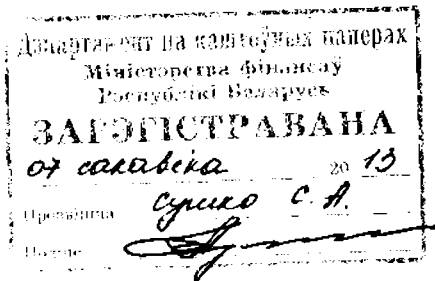 Дэпартамент па каштоўных паперах
Міністэрства фінансаў
Рэспублікі Беларусь
ЗАРЭГІСТРАВАНА
07 сакавіка 2013
Прозвішча Сушко С. А.
Подпіс